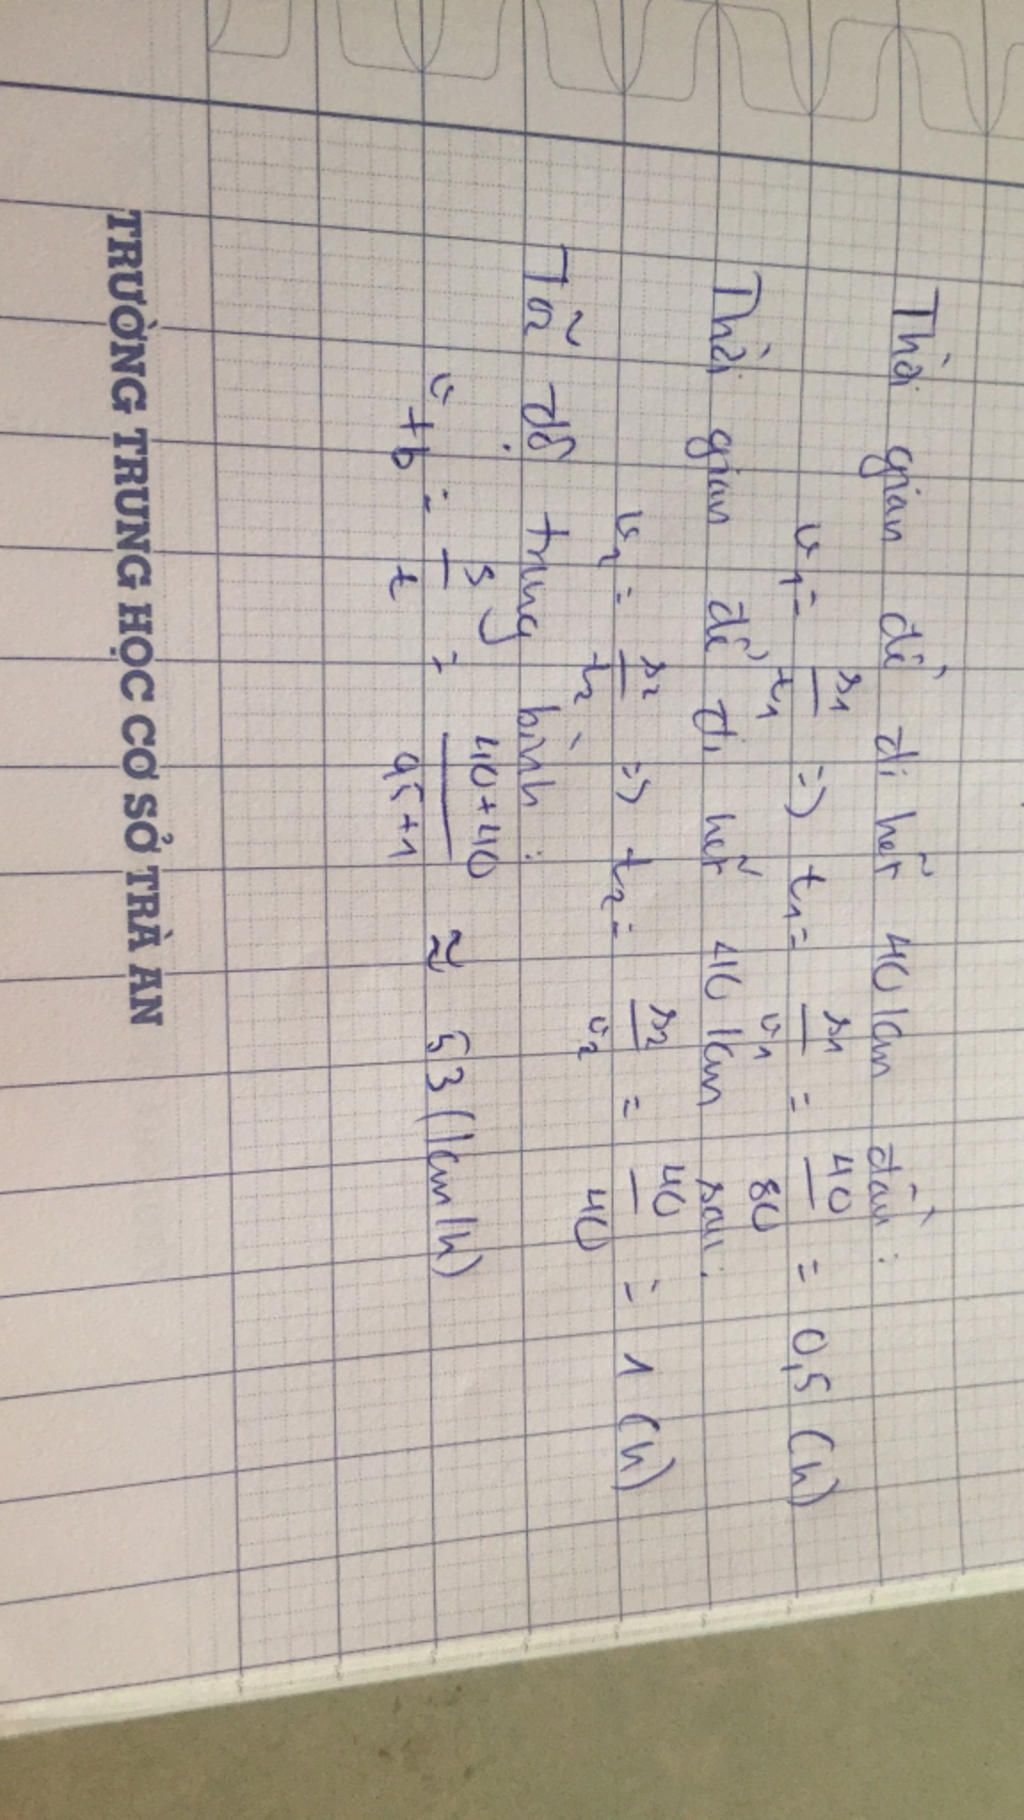 Thời gian để đi hết 40 km đầu:
v1 = s1/t1 => t1 = s1/v1 = 40/80 = 0,5 (h)
Thời gian để đi hết 40 km sau:
v2 = s2/t2 => t2 = s2/v2 = 40/40 = 1 (h)
Tốc độ trung bình:
vtb = s/t = 40+40/0,5+1 ≈ 53 (km/h)
TRƯỜNG TRUNG HỌC CƠ SỞ TRÀ AN